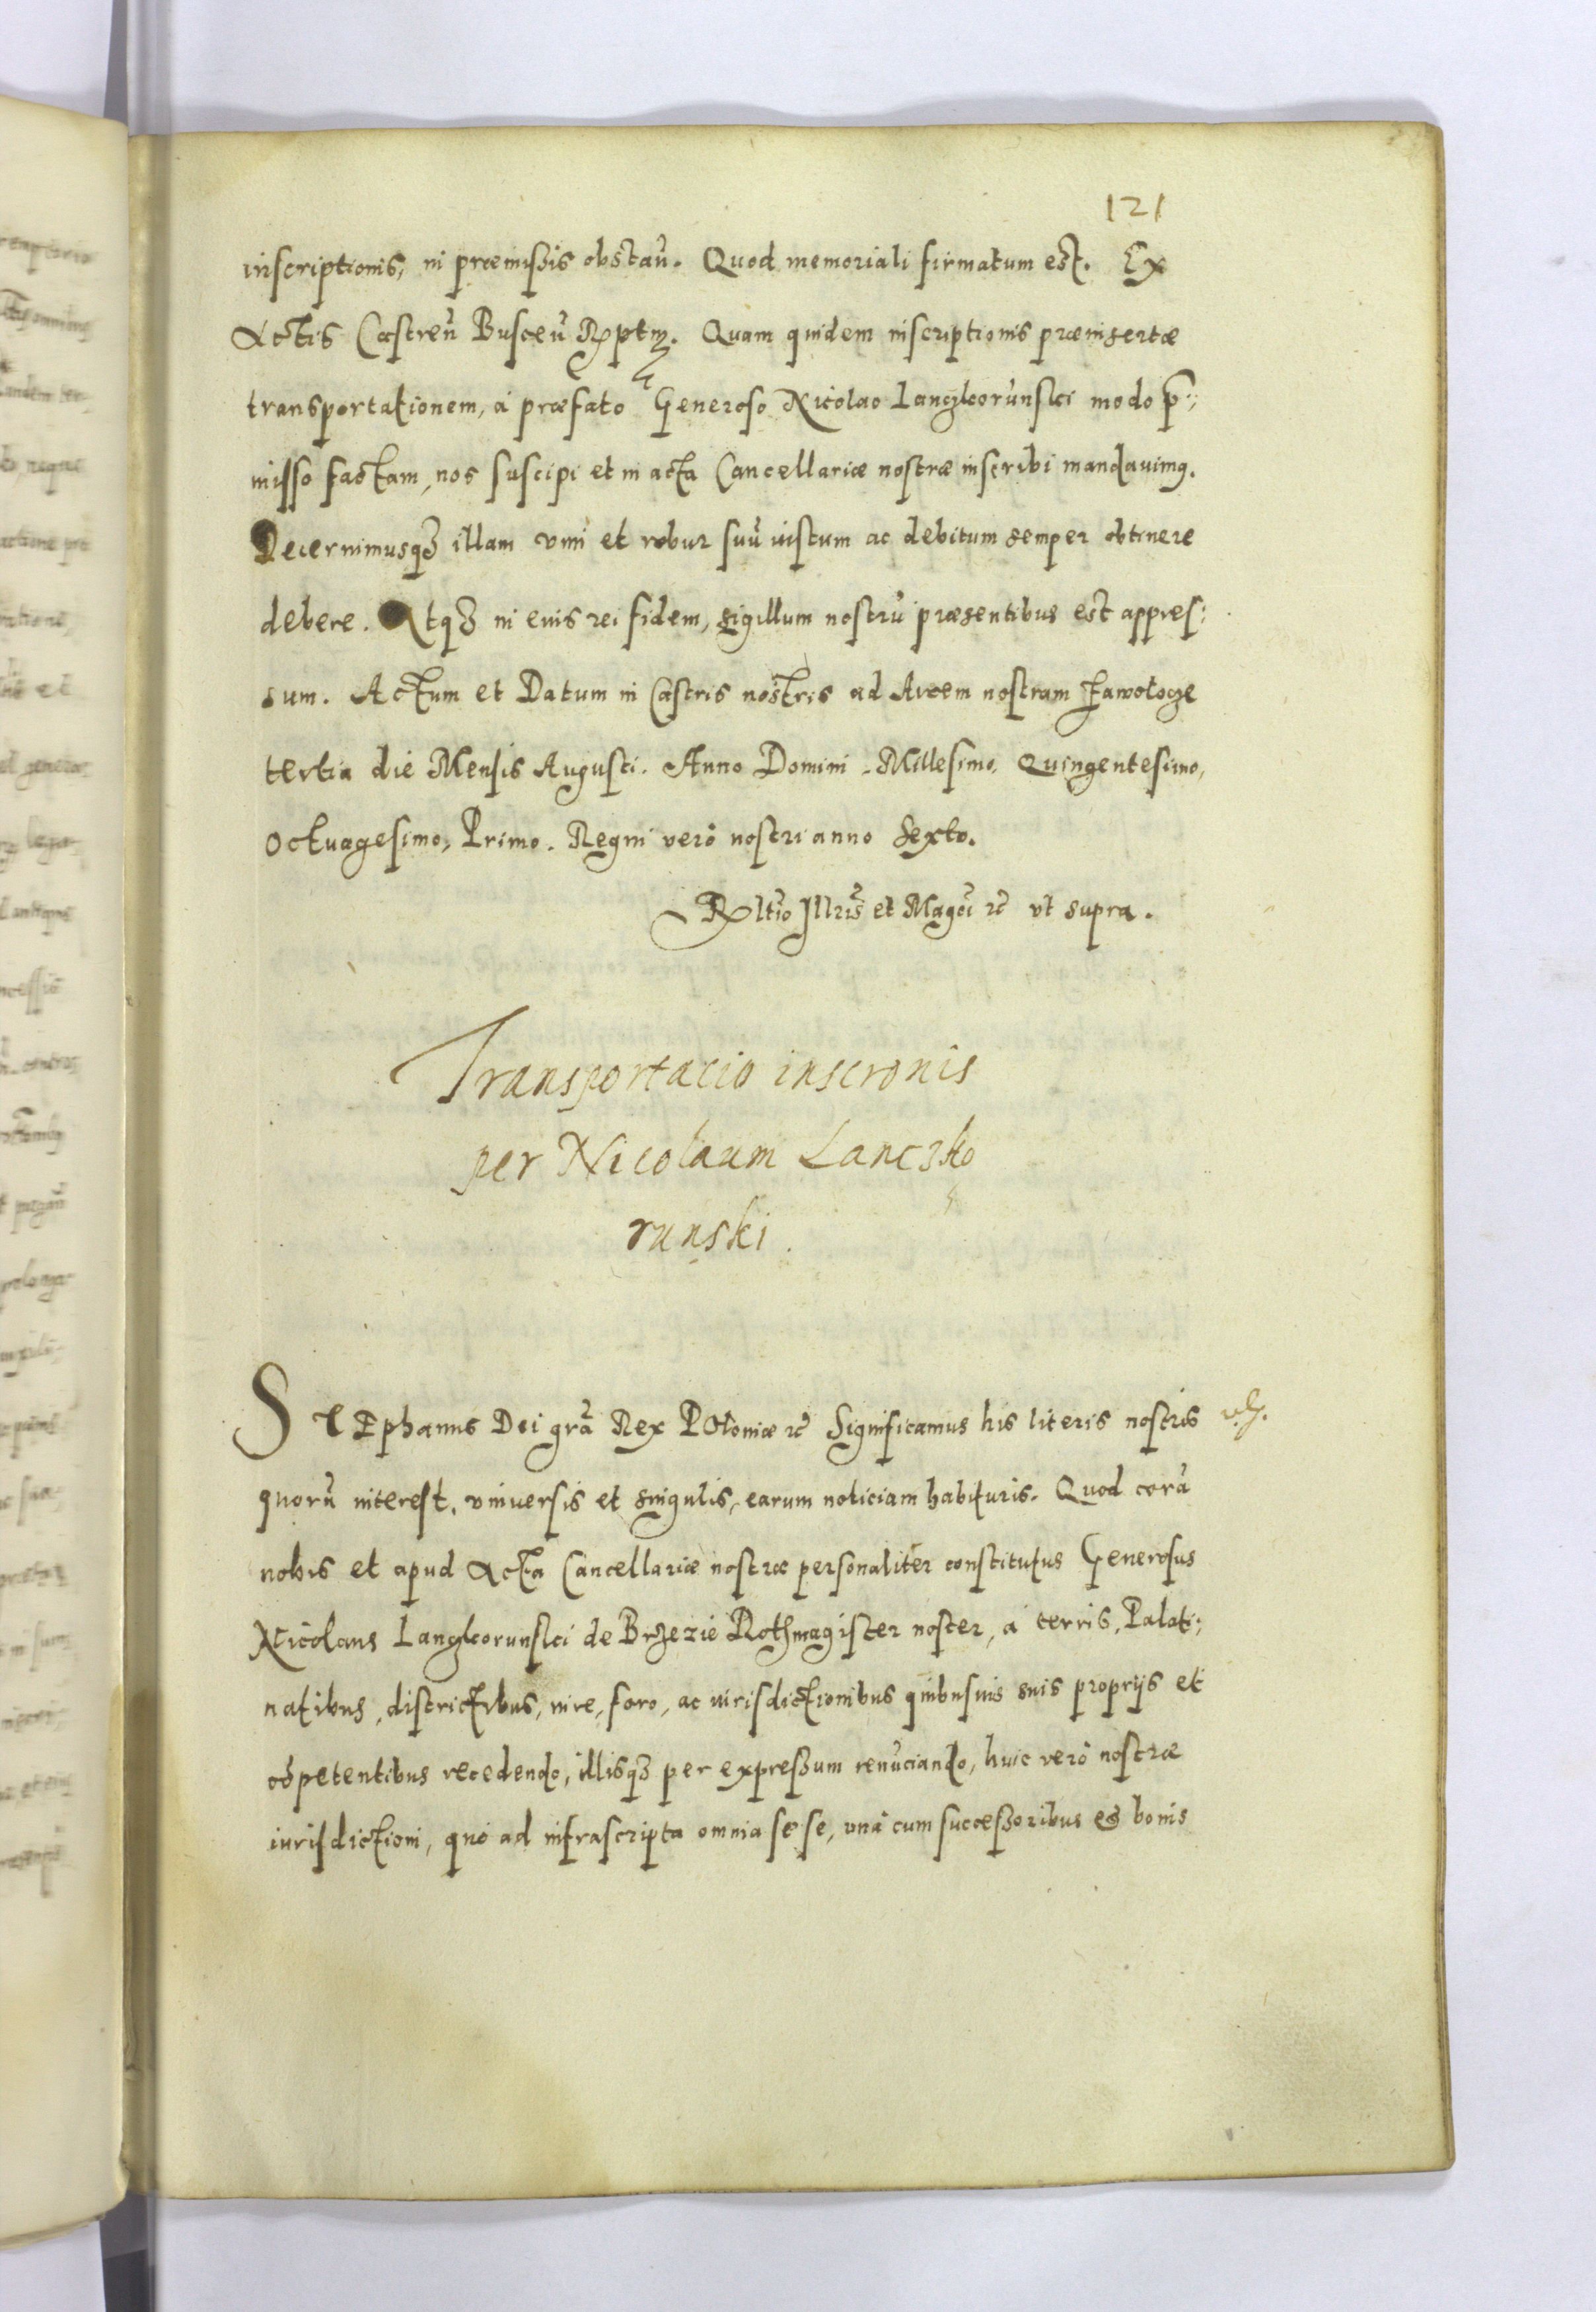 121
inscriptionis, in præmissis obstan̄. Quod memoriali firmatum est. Ex
Actis Castren̄ Buscen̄ Rptm. Quam quidem inscriptionis præinsertæ
transportationem, a præfato Generoso Nicolao Lanczkorunski modo p̄:
misso factam, nos suscipi et in acta Cancellariæ nostræ inscribi mandavimq.
Decernimusq3 illam vim et robur suū iustum ac debitum semper obtinere
debere. Atq3 in euis rei fidem, sigillum nostrū præsentibus est appres:
sum. Actum et Datum in Castris nostris ad Arcem nostram Zawolocze
tertia die Mensis Augusti. Anno Domini Millesimo, Quingentesimo,
Octuagesimo, Primo. Regni verò nostri anno Sexto.
Rltio Illris et Magci rc vt supra.
Transportacio inscronis
per Nicolaum Lanczko
runski.
STEphanus Dei grā Rex POloniæ rc Significamus his literis nostris
quorū interest, vniuersis et singulis, earum noticiam habituris. Quod corā
nobis et apud Acta Cancellariæ nostræ personaliter constitutus Generosus
Nicolaus Lanczkorunski de Brzezie Rothmagister noster, a terris, Palati:
natibus, districtibus, iure, foro, ac iurisdictionibus quibusuis suis proprijs et
cōpetentibus recedendo, illisq3 per expressum renūciando, huic verò nostræ
iurisdictioni, quo ad infrascripta omnia sese, vnà cum successoribus et bonis